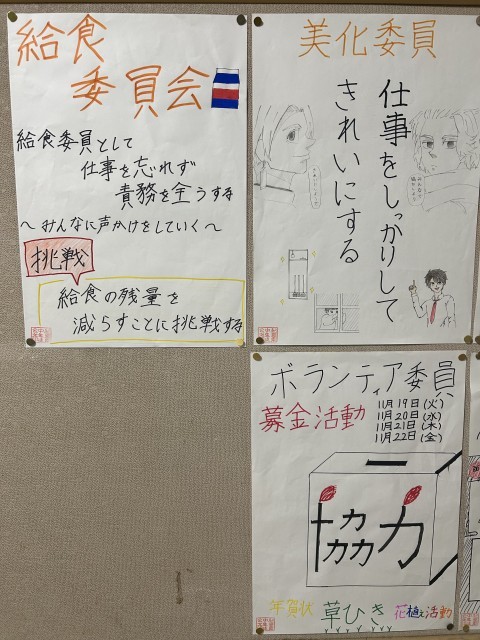 給食
委員会
給食委員として
仕事を忘れず
責務を全うする
～みんなに声かけをしていく～
挑戦
給食の残量を
減らすことに挑戦する
美化委員
仕事をしっかりして
きれいにする
ボランティア委員
募金活動
11月19日(火)
11月20日(水)
11月21日(木)
11月22日(金)
協力
年賀状
草ひき
花植え活動